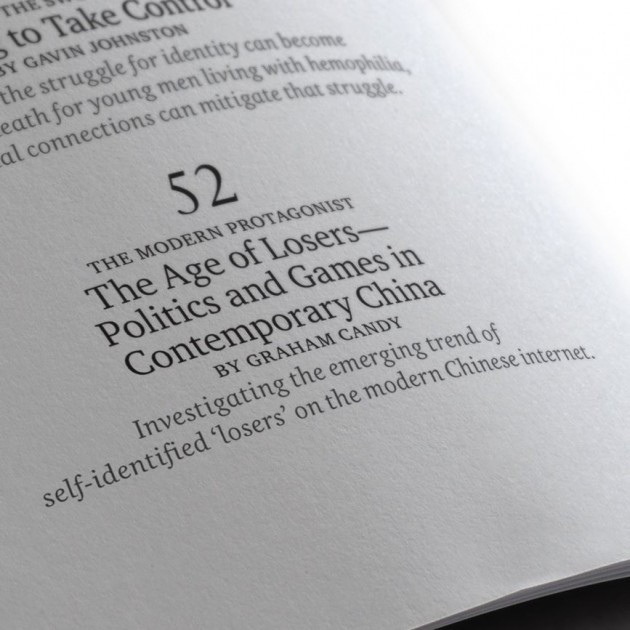 to Take Control
BY GAVIN JOHNSTON
the struggle for identity can become
death for young men living with hemophilia,
connections can mitigate that struggle.
52
THE MODERN PROTAGONIST
The Age of Losers—
Politics and Games in
Contemporary China
BY GRAHAM CANDY
Investigating the emerging trend of
self-identified ‘losers’ on the modern Chinese internet.